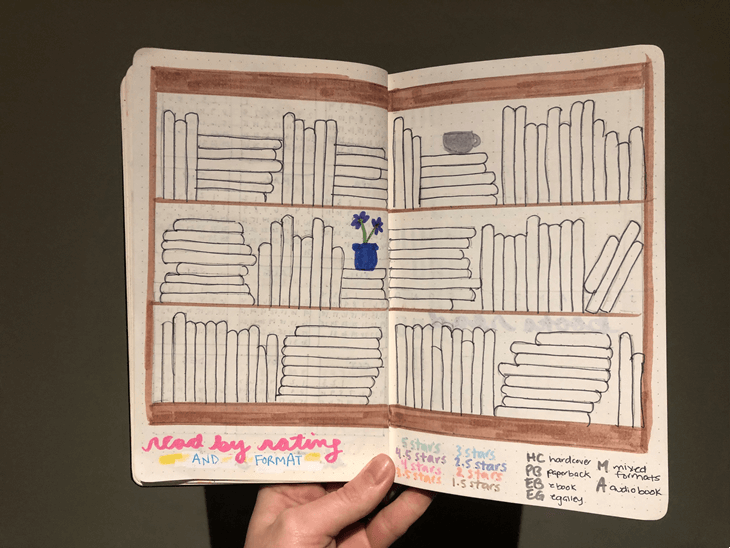 read by rating
AND FORMAT
5 stars
4.5 stars
4 stars
3.5 stars
3 stars
2.5 stars
2 stars
1.5 stars
HC hardcover
PB paperback
EB ebook
EG egalley
M mixed formats
A audiobook